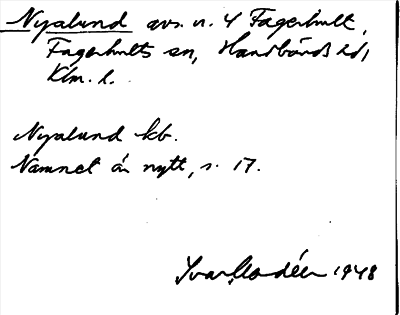 Nyalund avs. u. 4 Fagerhult,
Fagerhults sn, Handbörds hd,
Klm. l.
Nyalund kb.
Namnet är nytt, s. 17.
Ivar Modéer 1948